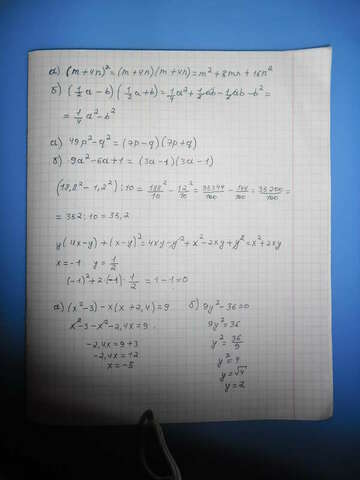 а) (m+4n)² = (m+4n)(m+4n) = m²+8mn+16n²
б) (½a-b)(½a+b) = ¼a²+½ab-½ab-b² =
= ¼a²-b²
а) 49p²-q² = (7p-q)(7p+q)
б) 9a²-6a+1 = (3a-1)(3a-1)
(18,8²-1,2²):10 = 188²/10 - 12²/10 = 35344/100 - 144/100 = 35200/100 =
= 352:10 = 35,2
y(4x-y)+(x-y)² = 4xy-y²+x²-2xy+y² = x²+2xy
x=-1 y=½
(-1)²+2·(-1)·½ = 1-1=0
а) (x²-3)-x(x+2,4)=9 б) 9y²-36=0
x²-3-x²-2,4x=9 9y²=36
-2,4x=9+3 y²=36/9
-2,4x=12 y²=4
x=-5 y=√4
y=2